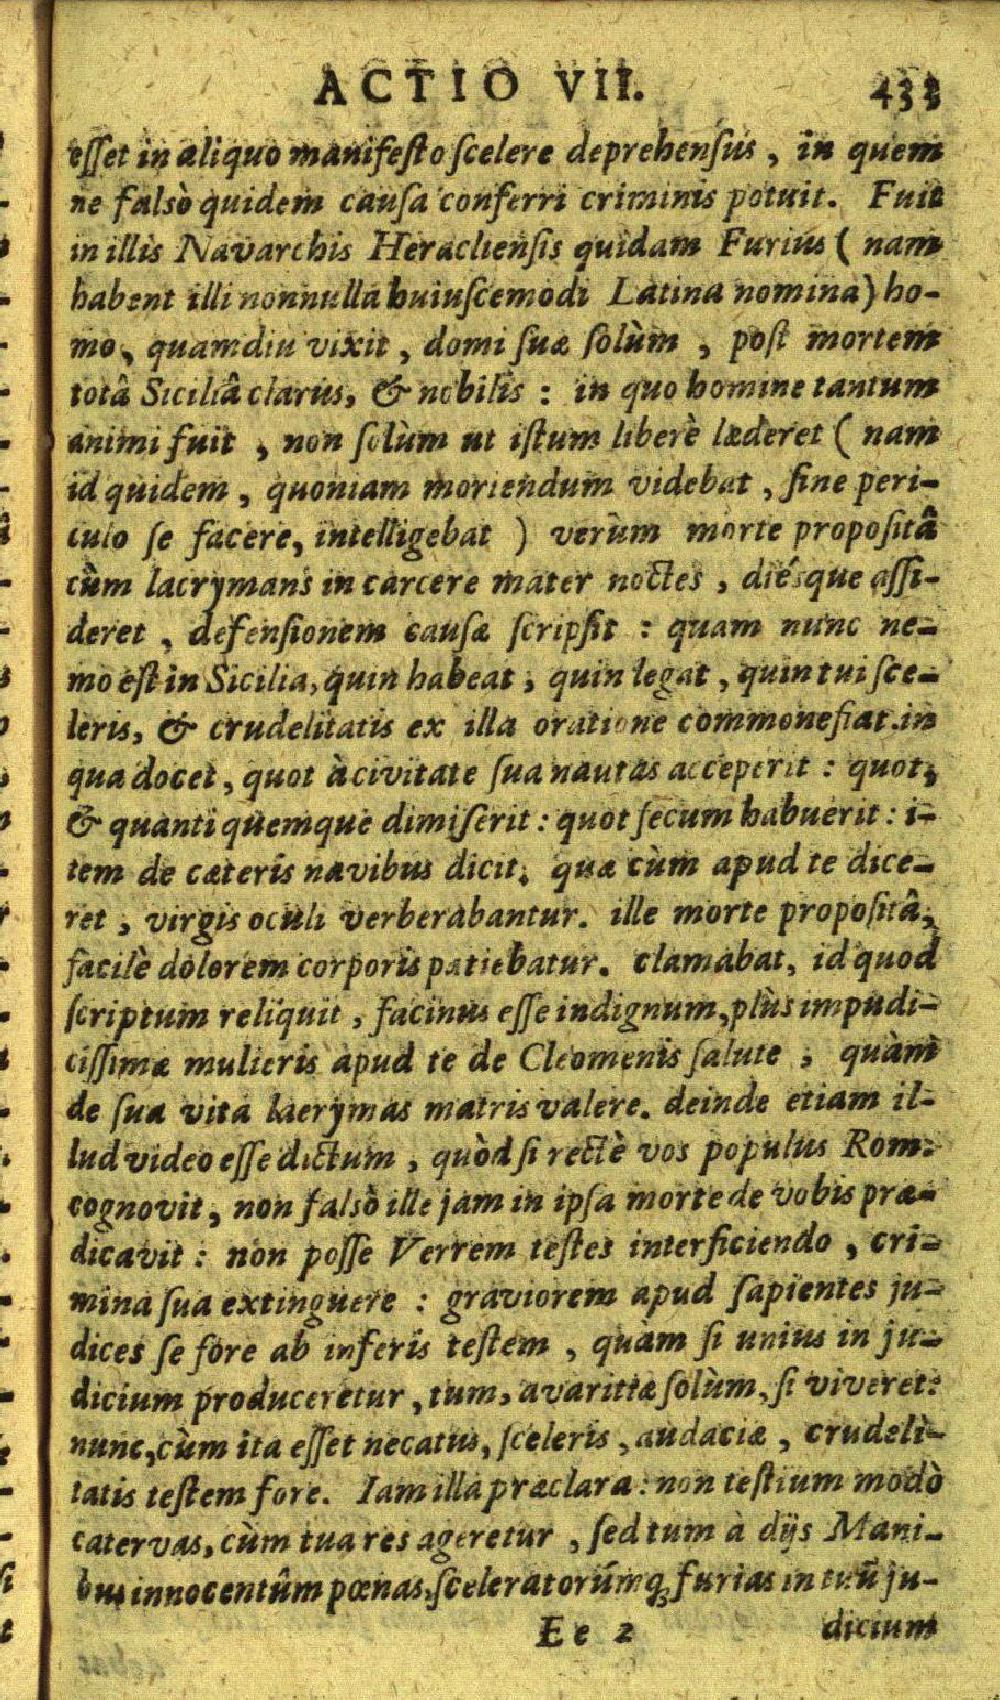 ACTIO VII. 433
esset in aliquo manifesto scelere deprehensus, in quem
ne falsò quidem causa conferri criminis potuit. Fuit
in illis Navarchis Heracliensis quidam Furius (nam
habent illi nonnulla huiuscemodi Latina nomina) ho-
mo, quamdiu vixit, domi suæ solùm, post mortem
totâ Siciliâ clarus, & nobilis: in quo homine tantum
animi fuit, non solùm ut istum liberè læderet (nam
id quidem, quoniam moriendum videbat, sine peri-
culo se facere, intelligebat) verùm morte propositâ
cùm lacrymans in carcere mater noctes, diésque assi-
deret, defensionem causæ scripsit: quam nunc ne-
mo est in Sicilia, quin habeat, quin legat, quin tui sce-
leris, & crudelitatis ex illa oratione commonefiat. in
qua docet, quot à civitate sua nautas acceperit: quot,
& quanti quemque dimiserit: quot secum habuerit: i-
tem de cæteris navibus dicit. quæ cùm apud te dice-
ret, virgis oculi verberabantur. ille morte propositâ,
facilè dolorem corporis patiebatur. clamabat, id quod
scriptum reliquit, facinus esse indignum, plùs impudi-
cissimæ mulieris apud te de Cleomenis salute, quàm
de sua vita lacrymas matris valere. deinde etiam il-
lud video esse dictum, quòd si rectè vos populus Rom.
cognovit, non falsò ille jam in ipsa morte de vobis præ-
dicavit: non posse Verrem testes interficiendo, cri-
mina sua extinguere: graviorem apud sapientes ju-
dices se fore ab inferis testem, quàm si unius in ju-
dicium produceretur, tum, avaritiæ solùm, si viveret:
nunc, cùm ita esset necatus, sceleris, audaciæ, crudeli-
tatis testem fore. Iam illa præclara: non testium modò
catervas, cùm tua res ageretur, sed tum à dijs Mani-
bus innocentûm pœnas, sceleratorúmq; furias in tuũ ju-
Ee 2 dicium